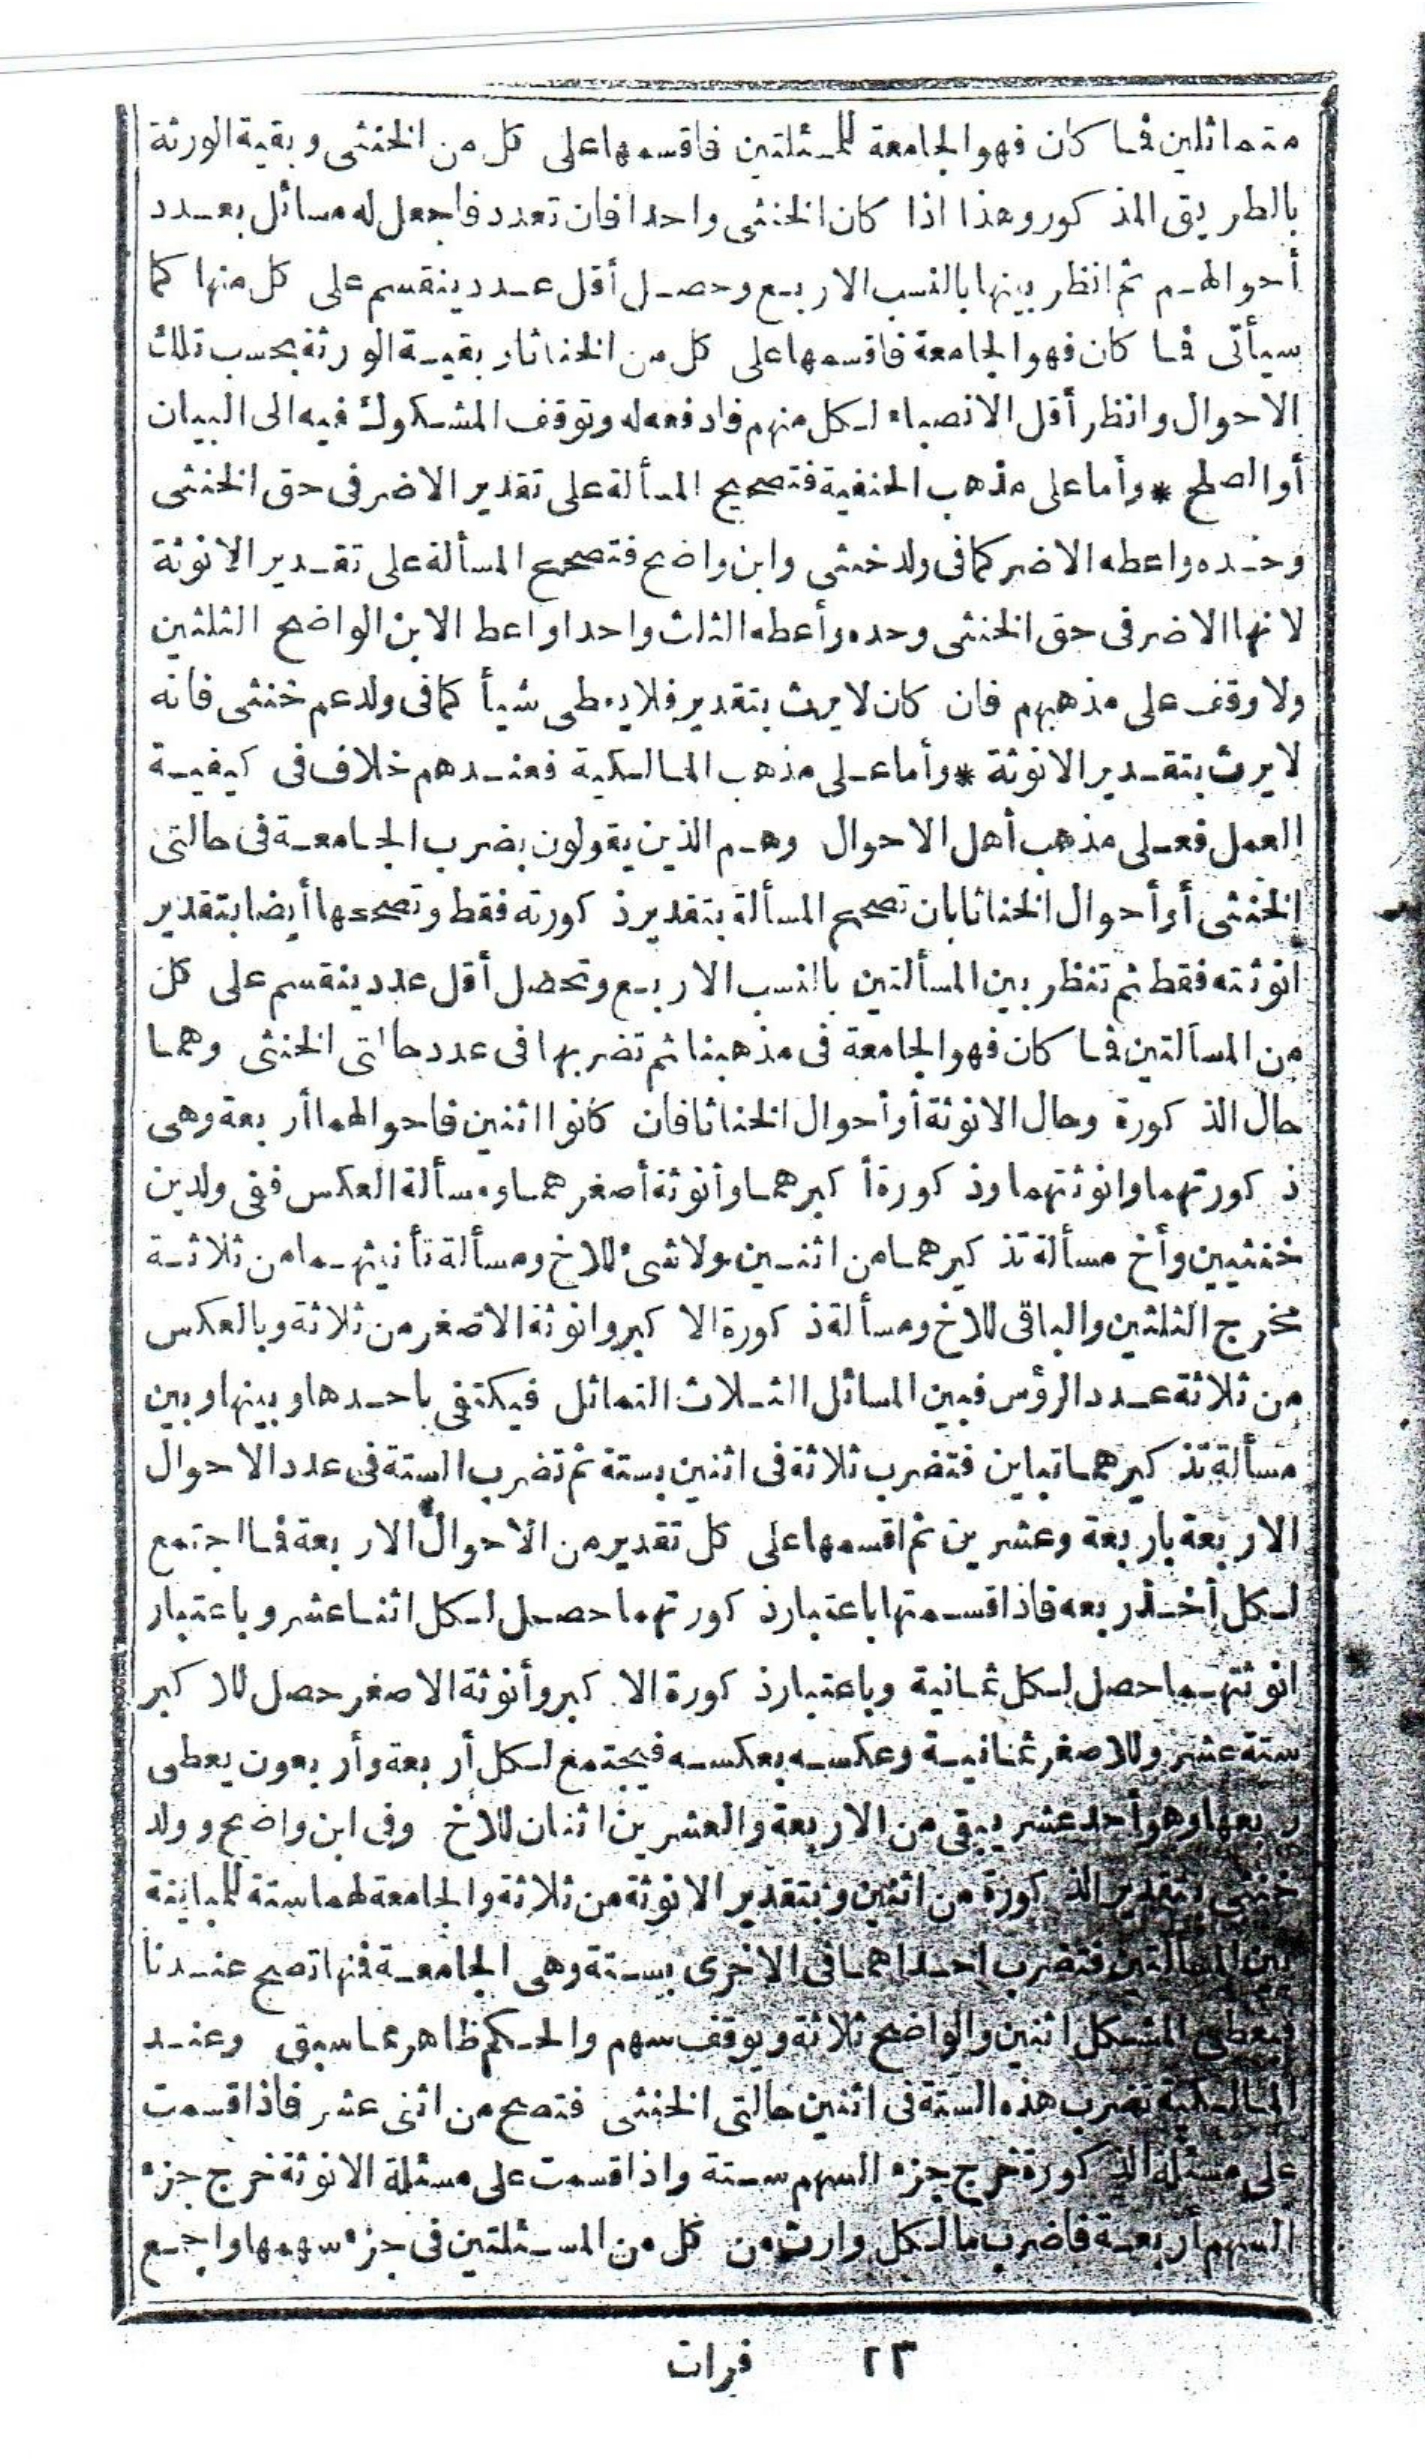 متماثلين فما كان فهو الجامعة للمسئلتين فاقسمها على كل من الخنثى وبقية الورثة
بالطريق المذكور وهذا اذا كان الخنثى واحدا فان تعدد فاجعل له مسائل بعدد
أحوالهم ثم انظر بينها بالنسب الاربع وحصل أقل عدد ينقسم على كل منها كما
سيأتى فما كان فهو الجامعة فاقسمها على كل من الخناثا وبقية الورثة بحسب تلك
الاحوال وانظر أقل الانصباء لكل منهم فادفعه له وتوقف المشكوك فيه الى البيان
أو الصلح * وأما على مذهب الحنفية فتصحيح المسألة على تقدير الاضر فى حق الخنثى
وحده واعطه الاضر كما فى ولد خنثى وابن واضح فتصحح المسألة على تقدير الانوثة
لانها الاضر فى حق الخنثى وحده وأعطه الثلث واحدا واعط الابن الواضح الثلثين
ولا وقف على مذهبهم فان كان لا يرث بتقدير فلا يعطى شيأ كما فى ولد عم خنثى فانه
لا يرث بتقدير الانوثة * وأما على مذهب المالكية فعندهم خلاف فى كيفية
العمل فعلى مذهب أهل الاحوال وهم الذين يقولون بضرب الجامعة فى حالتى
الخنثى أو أحوال الخناثا بان تصحح المسألة بتقدير ذكورته فقط وتصححها أيضا بتقدير
انوثته فقط ثم تنظر بين المسألتين بالنسب الاربع وتحصل أقل عدد ينقسم على كل
من المسألتين فما كان فهو الجامعة فى مذهبنا ثم تضربها فى عدد حالتى الخنثى وهما
حال الذكورة وحال الانوثة أو أحوال الخناثا فان كانوا اثنين فاحوالهما أربعة وهى
ذكورتهما وانوثتهما وذكورة أكبرهما وأنوثة أصغرهما ومسألة العكس ففى ولدين
خنثيين وأخ مسألة تذكيرهما من اثنين ولا شئ للاخ ومسألة تأنيثهما من ثلاثة
مخرج الثلثين والباقى للاخ ومسألة ذكورة الاكبر وانوثة الاصغر من ثلاثة وبالعكس
من ثلاثة عدد الرؤس فبين المسائل الثلاث التماثل فيكتفى باحدها وبينها وبين
مسألة تذكيرهما تباين فتضرب ثلاثة فى اثنين بستة ثم تضرب الستة فى عدد الاحوال
الاربعة باربعة وعشرين ثم اقسمها على كل تقدير من الاحوال الاربعة فما اجتمع
لكل أخذ ربعه فاذا قسمتها باعتبار ذكورتهما حصل لكل اثنا عشر وباعتبار
انوثتهما حصل لكل ثمانية وباعتبار ذكورة الاكبر وأنوثة الاصغر حصل للاكبر
ستة عشر وللاصغر ثمانية وعكسه بعكسه فيجتمع لكل أربعة وأربعون يعطى
ربعها وهو أحد عشر يبقى من الاربعة والعشرين اثنان للاخ وفى ابن واضح وولد
خنثى بتقدير الذكورة من اثنين وبتقدير الانوثة من ثلاثة والجامعة لهما ستة للمباينة
بين المسألتين فتضرب احداهما فى الاخرى بستة وهى الجامعة فمنها تصح عندنا
فيعطى المشكل اثنين والواضح ثلاثة ويوقف سهم والحكم ظاهر مما سبق وعند
المالكية تضرب هذه الستة فى اثنين حالتى الخنثى فتصح من اثنى عشر فاذا قسمت
على مسئلة الذكورة خرج جزء السهم ستة واذا قسمت على مسئلة الانوثة خرج جزء
السهم أربعة فاضرب ما لكل وارث من كل من المسئلتين فى جزء سهمها واجمع
٢٣ فرات